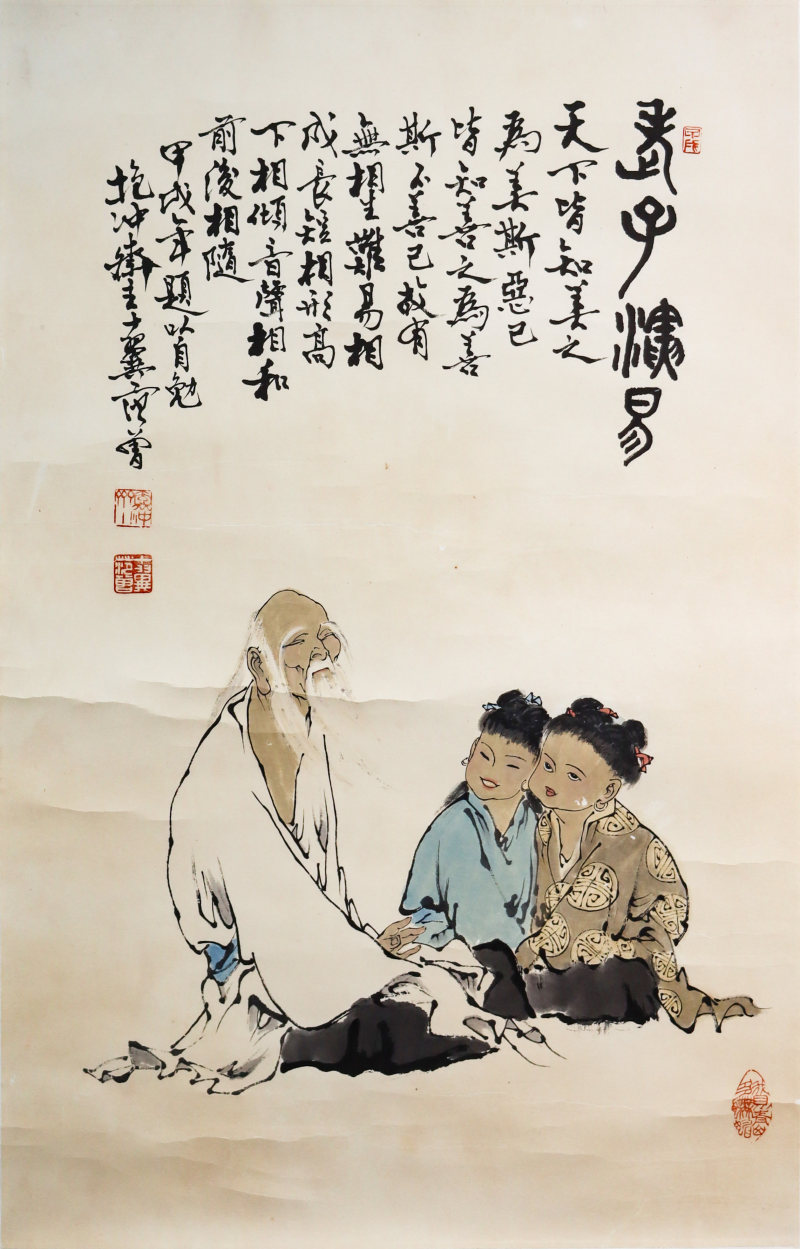 老子演易
天下皆知美之
為美斯惡已
皆知善之為善
斯不善已故有
無相生難易相
成長短相形高
下相傾音聲相和
前後相隨
甲戌年題以自勉
抱冲齋主十翼范曾